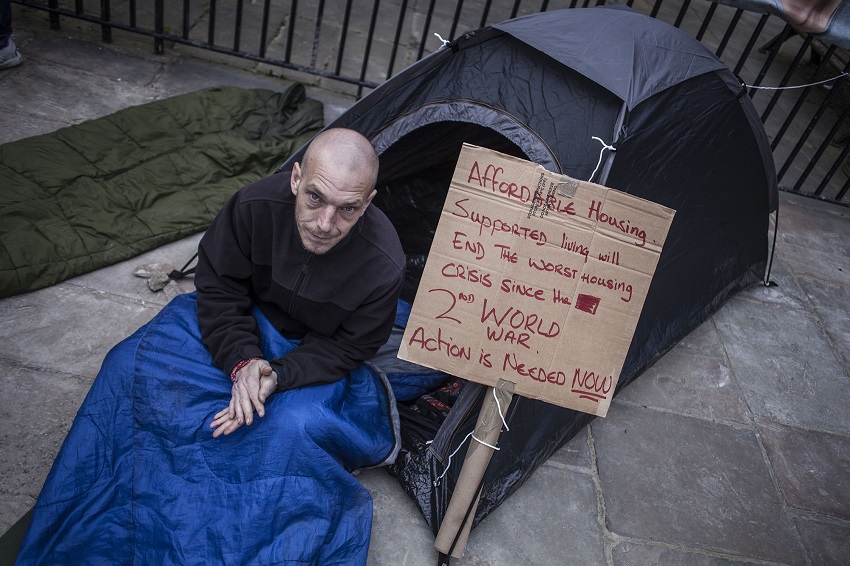 AFFORDABLE Housing.
Supported living will
END THE WORST Housing
CRISIS SINCE THE
2ND WORLD
WAR.
Action is Needed NOW